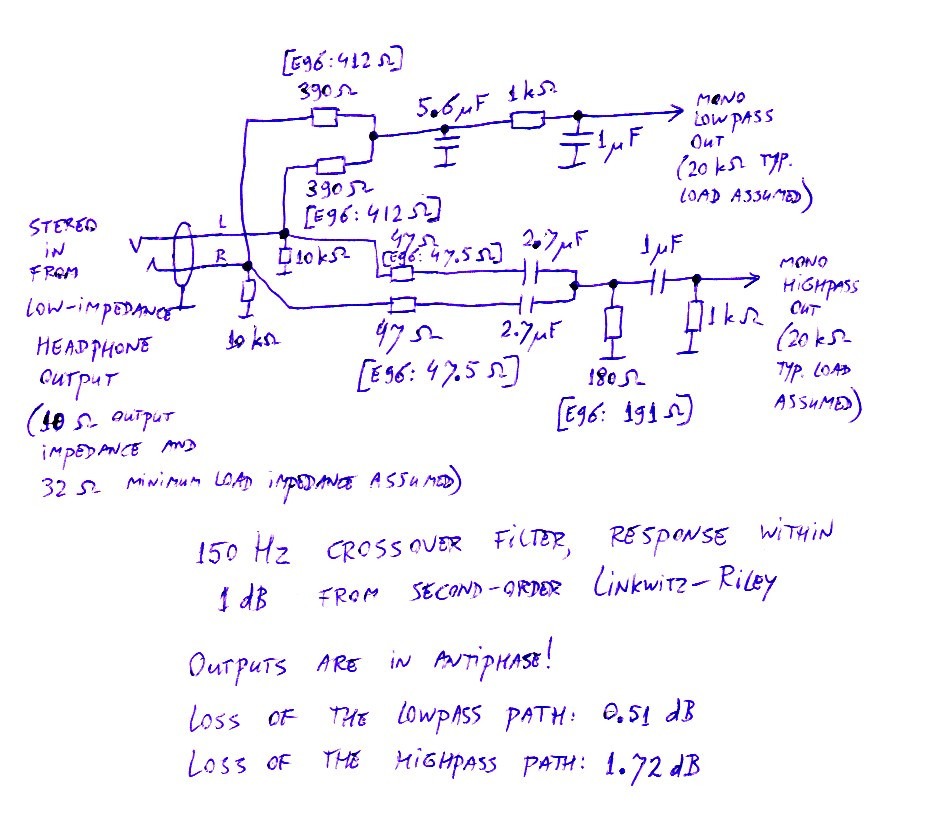 [E96: 412 Ω]
390 Ω
5.6 μF
1 kΩ
MONO
LOWPASS
OUT
(20 kΩ TYP.
LOAD ASSUMED)
1 μF
390 Ω
[E96: 412 Ω]
STEREO
IN
FROM
LOW-IMPEDANCE
HEADPHONE
OUTPUT
(10 Ω OUTPUT
IMPEDANCE AND
32 Ω MINIMUM LOAD IMPEDANCE ASSUMED)
L
R
10 kΩ
10 kΩ
47 Ω
[E96: 47.5 Ω]
2.7 μF
47 Ω
[E96: 47.5 Ω]
2.7 μF
1 μF
180 Ω
[E96: 191 Ω]
1 kΩ
MONO
HIGHPASS
OUT
(20 kΩ
TYP. LOAD
ASSUMED)
150 Hz CROSSOVER FILTER, RESPONSE WITHIN
1 dB FROM SECOND-ORDER LINKWITZ-RILEY
OUTPUTS ARE IN ANTIPHASE!
LOSS OF THE LOWPASS PATH: 0.51 dB
LOSS OF THE HIGHPASS PATH: 1.72 dB